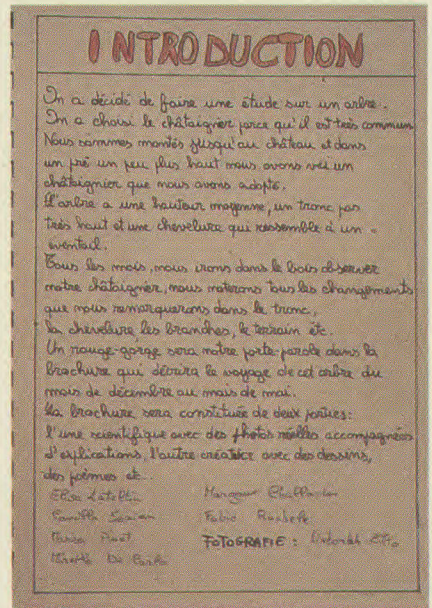 INTRODUCTION
On a décidé de faire une étude sur un arbre.
On a choisi le châtaignier parce qu'il est très commun
Nous sommes montés jusqu'au château et dans
un pré un peu plus haut nous avons vu un
châtaignier que nous avons adopté.
L'arbre a une hauteur moyenne, un tronc pas
très haut et une chevelure qui ressemble à un
éventail.
Tous les mois, nous irons dans le bois observer
notre châtaignier, nous noterons tous les changements
que nous remarquerons dans le tronc,
la chevelure, les branches, le terrain etc.
Un rouge-gorge sera notre porte-parole dans la
brochure qui décrira le voyage de cet arbre du
mois de décembre au mois de mai.
La brochure sera constituée de deux parties:
l'une scientifique avec des photos réelles accompagnées
d'explications, l'autre créative avec des dessins,
des poèmes etc..
FOTOGRAFIE :